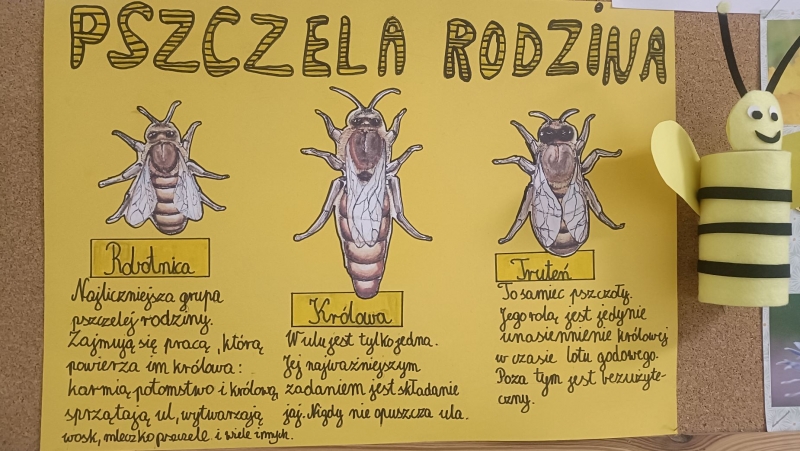 PSZCZELA RODZINA
Robotnica
Najliczniejsza grupa
pszczelej rodziny.
Zajmują się pracą, którą
powierza im królowa:
karmią potomstwo i królową,
sprzątają ul, wytwarzają
wosk, mleczko pszczele i wiele innych.
Królowa
W ulu jest tylko jedna.
Jej najważniejszym
zadaniem jest składanie
jaj. Nigdy nie opuszcza ula.
Truteń
To samiec pszczoły.
Jego rolą jest jedynie
unasiennienie królowej
w czasie lotu godowego.
Poza tym jest bezużyte-
czny.